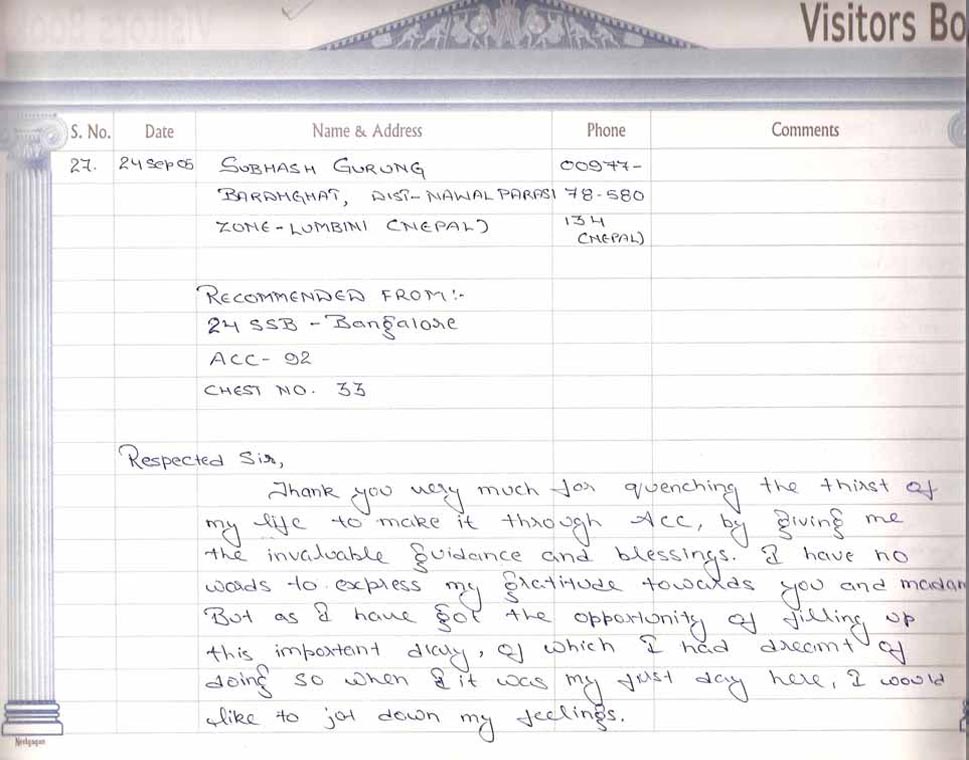 Visitors Bo
S. No. Date Name & Address Phone Comments
27. 24 Sep 05 SUBHASH GURUNG 00977-
BARDHGHAT, DIST-NAWALPARASI 78-580
ZONE-LUMBINI (NEPAL) 134
(NEPAL)
RECOMMENDED FROM:-
24 SSB - Bangalore
ACC- 92
CHEST NO. 33
Respected Sir,
Thank you very much for quenching the thirst of
my life to make it through ACC, by giving me
the invaluable guidance and blessings. I have no
words to express my gratitude towards you and madam
But as I have got the opportunity of filling up
this important diary, of which I had dreamt of
doing so when it was my first day here, I would
like to jot down my feelings.
Neelgagan